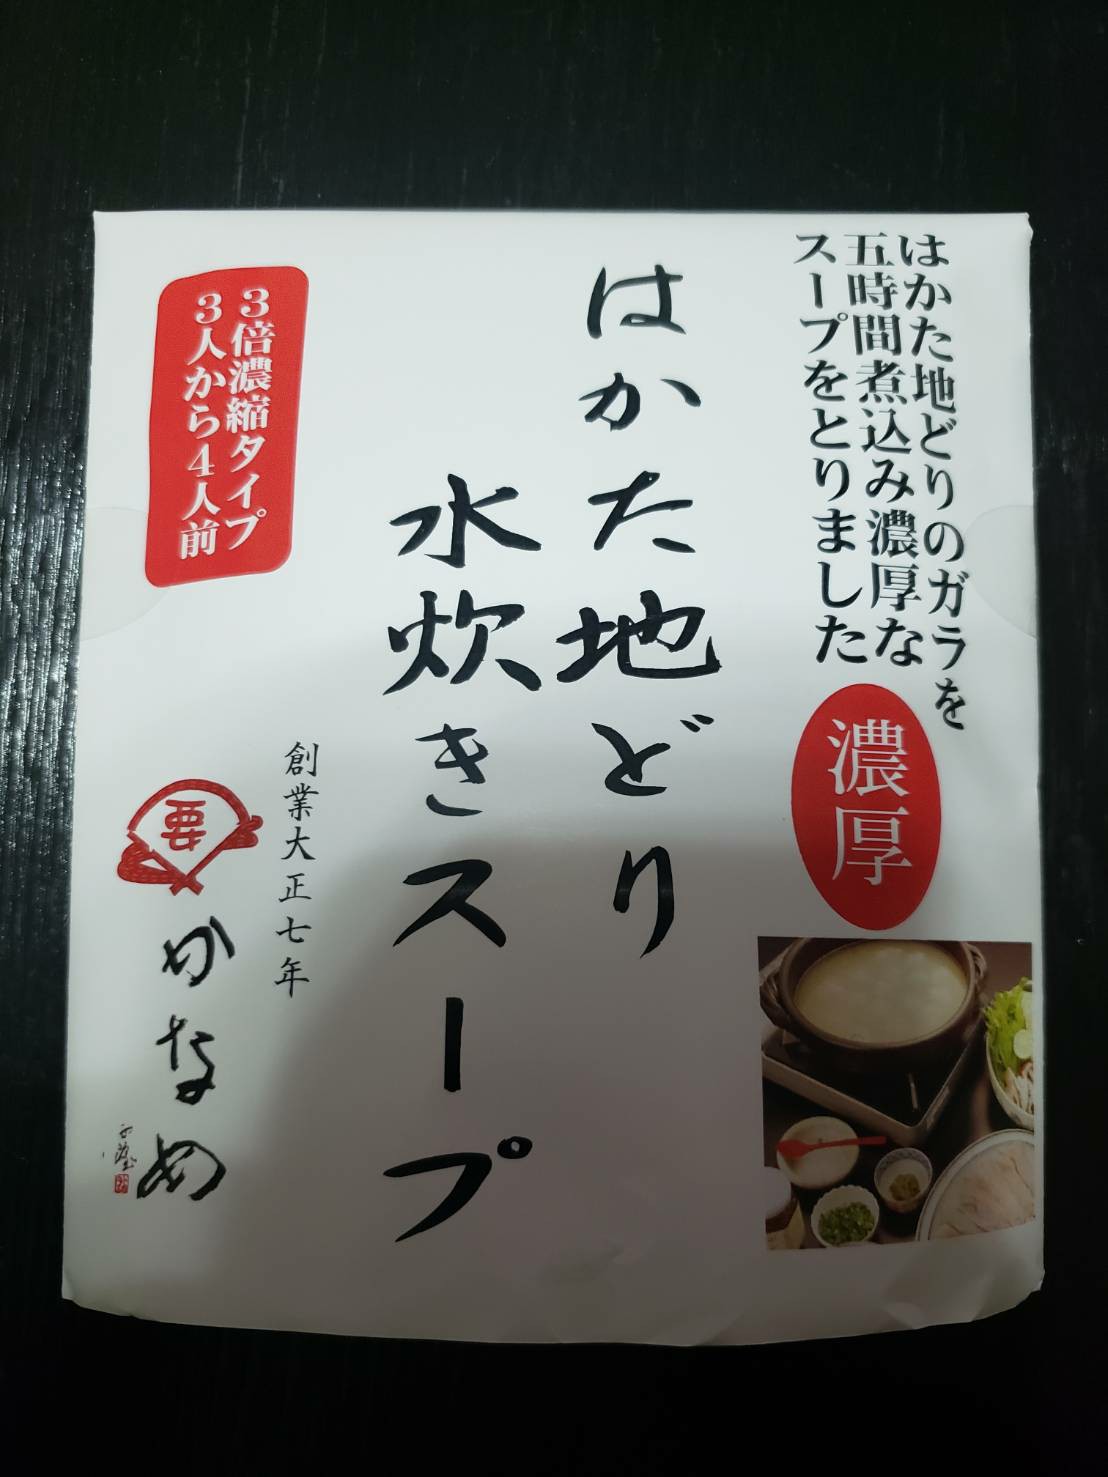 はかた地どりのガラを
五時間煮込み濃厚な
スープをとりました
濃厚
はかた地どり
水炊きスープ
3倍濃縮タイプ
3人から4人前
創業大正七年
要
かなめ